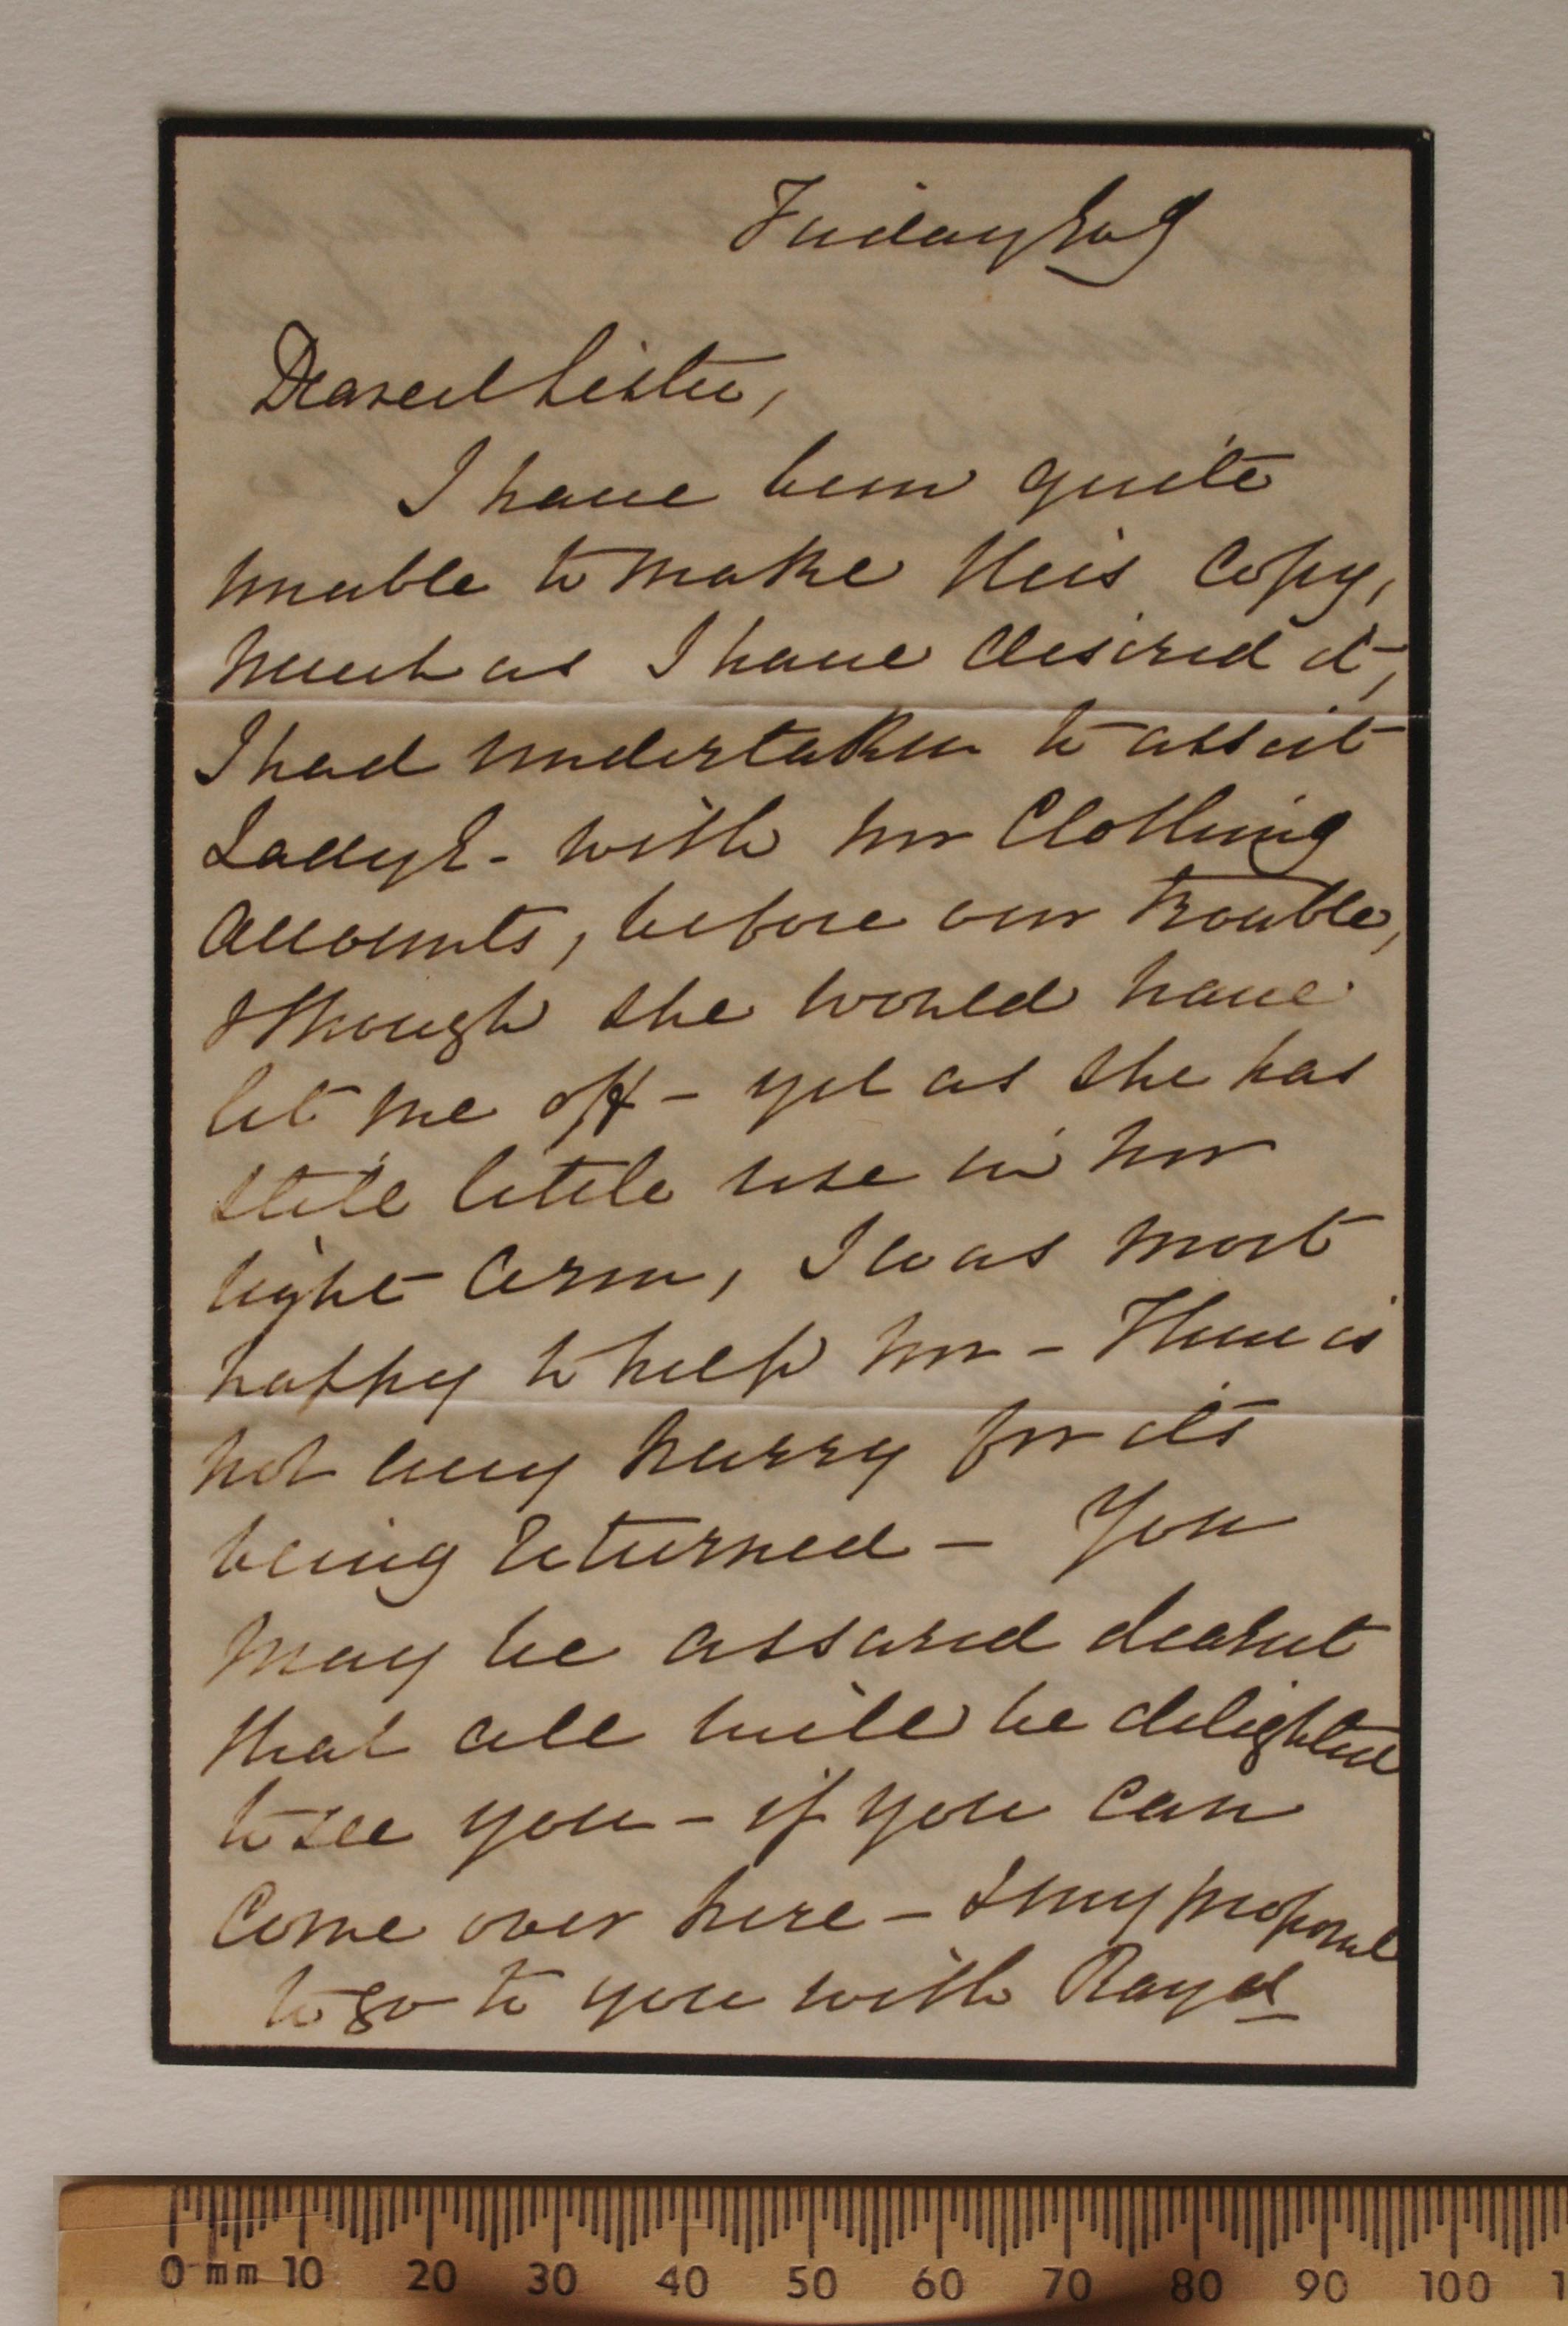 Friday Evg
Dearest Sister,
I have been quite
unable to make this Copy,
much as I have desired it,
I had undertaken to assist
Lady E- with her Clothing
Accounts, before our trouble,
& though she would have
let me off - yet as she has
still little use in her
right arm, I was most
happy to help her - There is
not any hurry for its
being returned - You
may be assured dearest
that all will be delighted
to see you - if you can
Come over here - & my proposal
to go to you with Rayd
0 mm 10 20 30 40 50 60 70 80 90 100 1